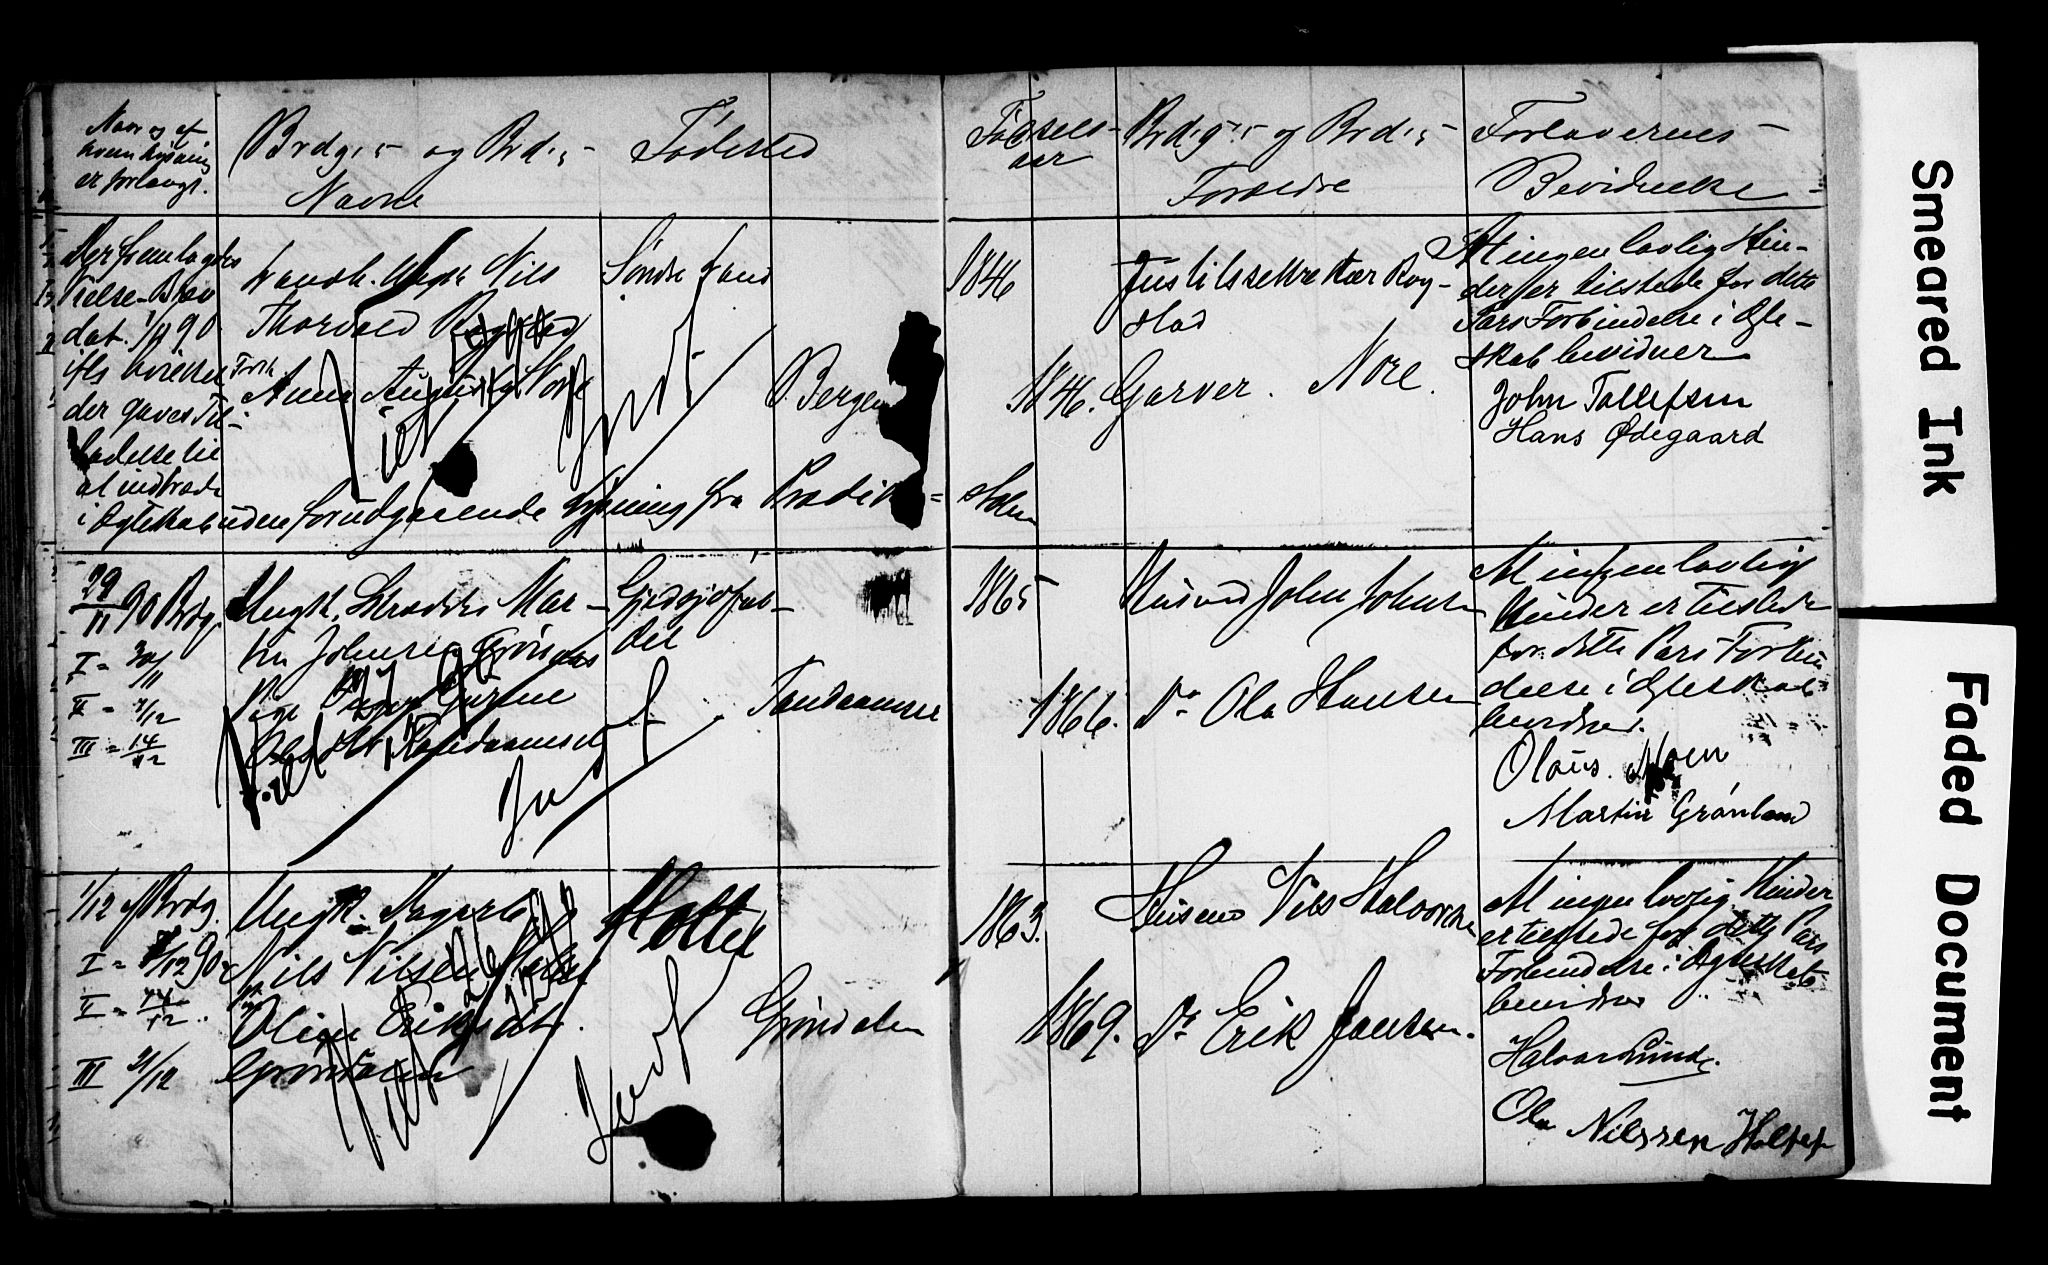 Naar og af
hvem lysning
er forlangt.
Brdg. og Brd.
Navne
Fødested
Fødsels-
aar
Brdg. og Brd.
Forældre
Forlovernes
Bevidnelse
Der fremlagdes
Vielse-Brev
dat. 1/11 90
ifls hvilket
der gaves Til-
ladelse til
at indtræde
i Ægteskab uden forudgaaende Lysning fra Prædike= stolen
Nils
Thorvald Rogstad
Frk
Anna Augusta Nore
Viet
Indf
Søndre Land
Bergen
1846
1846.
Rog-
stad
Garver. Nore.
At ingen lovlig Hin-
der er tilstede for dette
Pars Forbindelse i Ægte-
skab bevidner
John Tollefsen
Hans Ødegaard
29/11 90 Brdg.
I = 30/11
II = 7/12
III = 14/12
Ungk. Mar-
tin Johnsen
Pige
Viet
Indf
del
1865
1866.
Husmd John Johnsen
Do Ola Hansen
At ingen lovlig
Hinder er tilstede
for dette Pars Forbin
delse i Ægteskab
bevidner.
Olaus Moen
Martin Grønland
1/12 af Brdg.
I = 7/12 90
II = 14/12.
III 21/12
Ungk.
Nils Nilsen
Pige
Oline Eriksdtr.
Grøndalen
Viet
Indf
Grøndalen
1863.
1869.
Husmd Nils Halvorsen
Do Erik Jansen.
At ingen lovlig Hinder
er tilstede for dette Pars
Forbindelse i Ægteskab
bevidner
Halvor Lunde.
Ola Nilssen
Smeared Ink
Faded Document